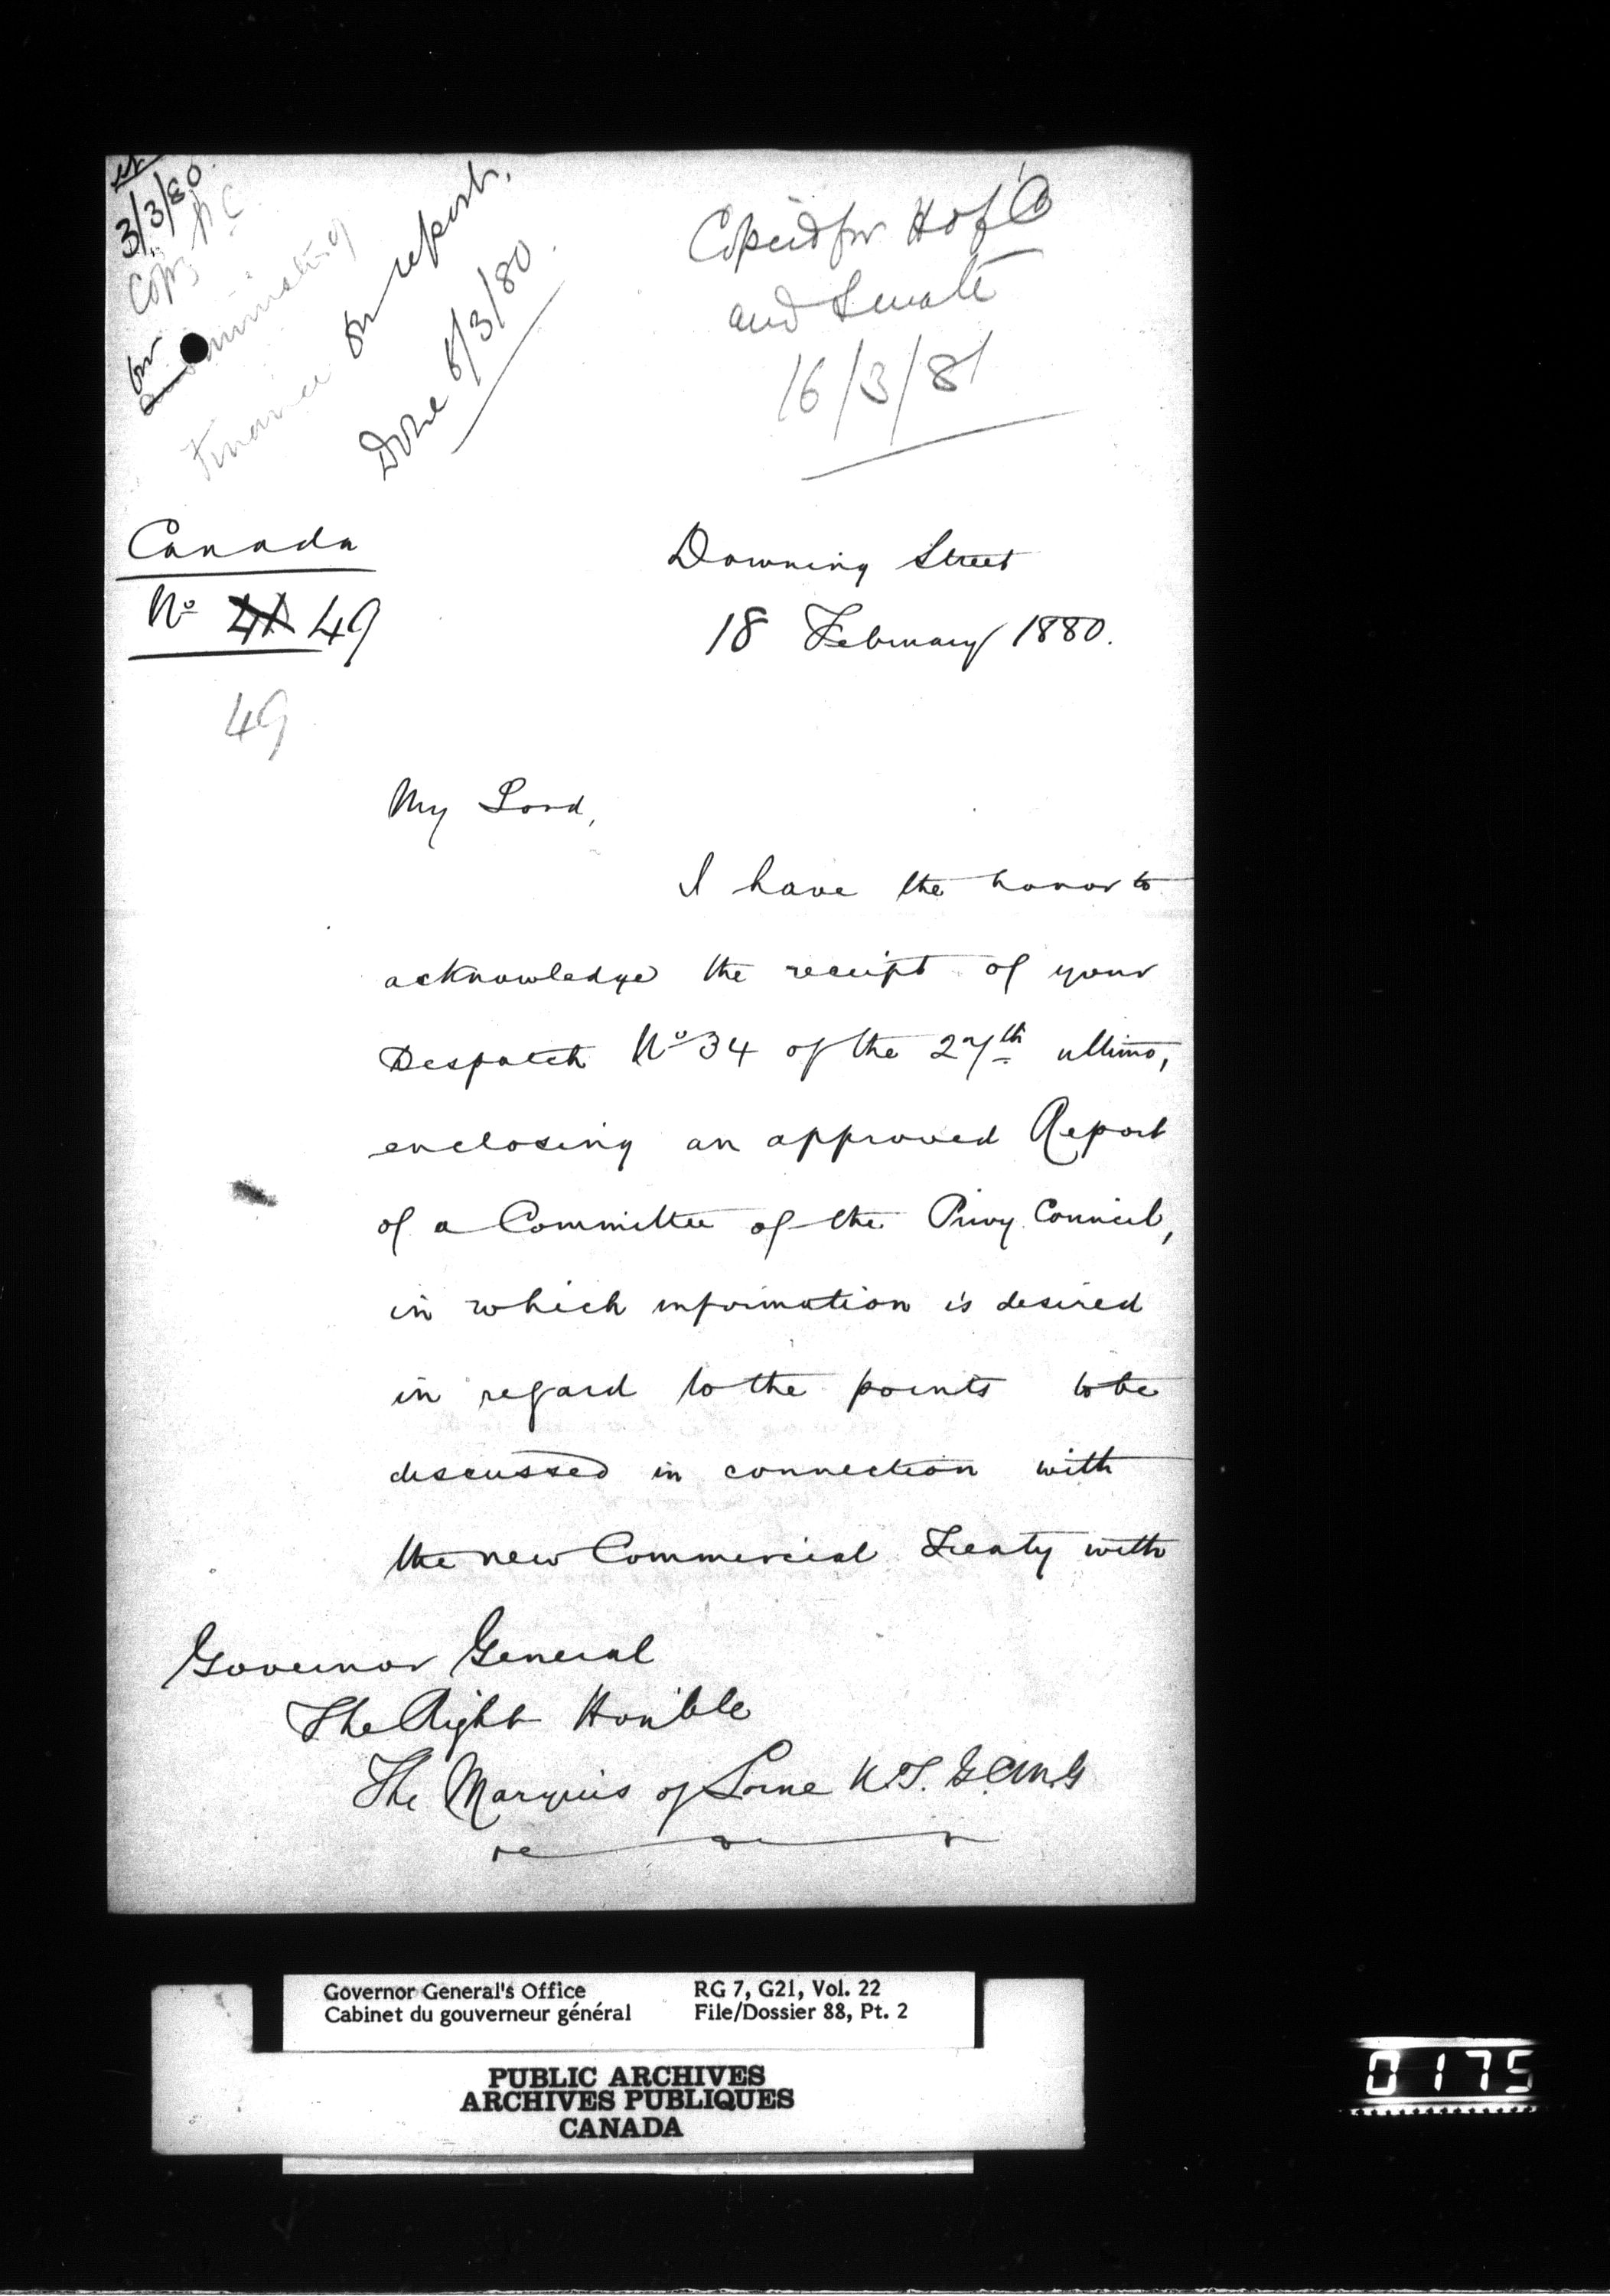 3/3/80.
Copy P.C
for
Finance
on report.
Done 6/3/80.
Copied for H of C
and Senate
16/3/81
Canada
No 41 49
49
Downing Street
18 February 1880.
My Lord,
I have the honor to
acknowledge the receipt of your
Despatch No 34 of the 27th ultimo,
enclosing an approved Report
of a Committee of the Privy Council,
in which information is desired
in regard to the points to be
discussed in connection with
the new Commercial Treaty with
Governor General
The Right Honble
The Marquis of Lorne K.T. G.C.M.G
Governor General's Office
Cabinet du gouverneur général
RG 7, G21, Vol. 22
File/Dossier 88, Pt. 2
PUBLIC ARCHIVES
ARCHIVES PUBLIQUES
CANADA
0175